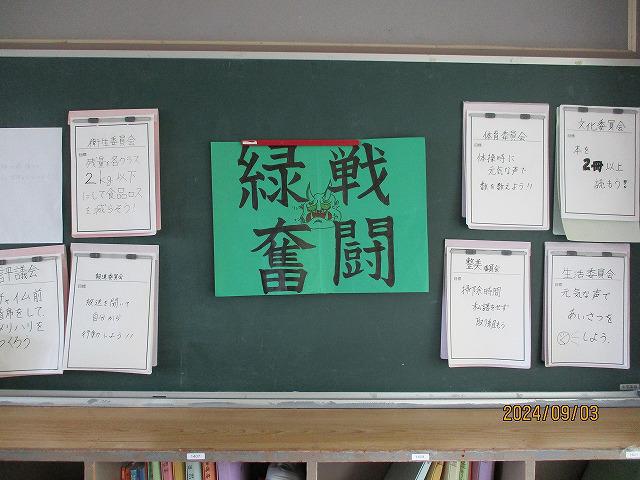 衛生委員会
目標
残食を各クラス
2kg以下
にして食品ロス
を減らそう!
評議会
チャイム前
着席をして、
メリハリを
つくろう
報道委員会
目標
放送を聞いて
自分から
行動しよう!!
緑戦
奮闘
体育委員会
目標
体操時に
元気な声で
数を数えよう!!
文化委員会
目標
本を
2冊以上
読もう!
整美委員会
目標
掃除時間
私語をせず
取り組もう
生活委員会
目標
元気な声で
あいさつを
しよう。
2024/09/03